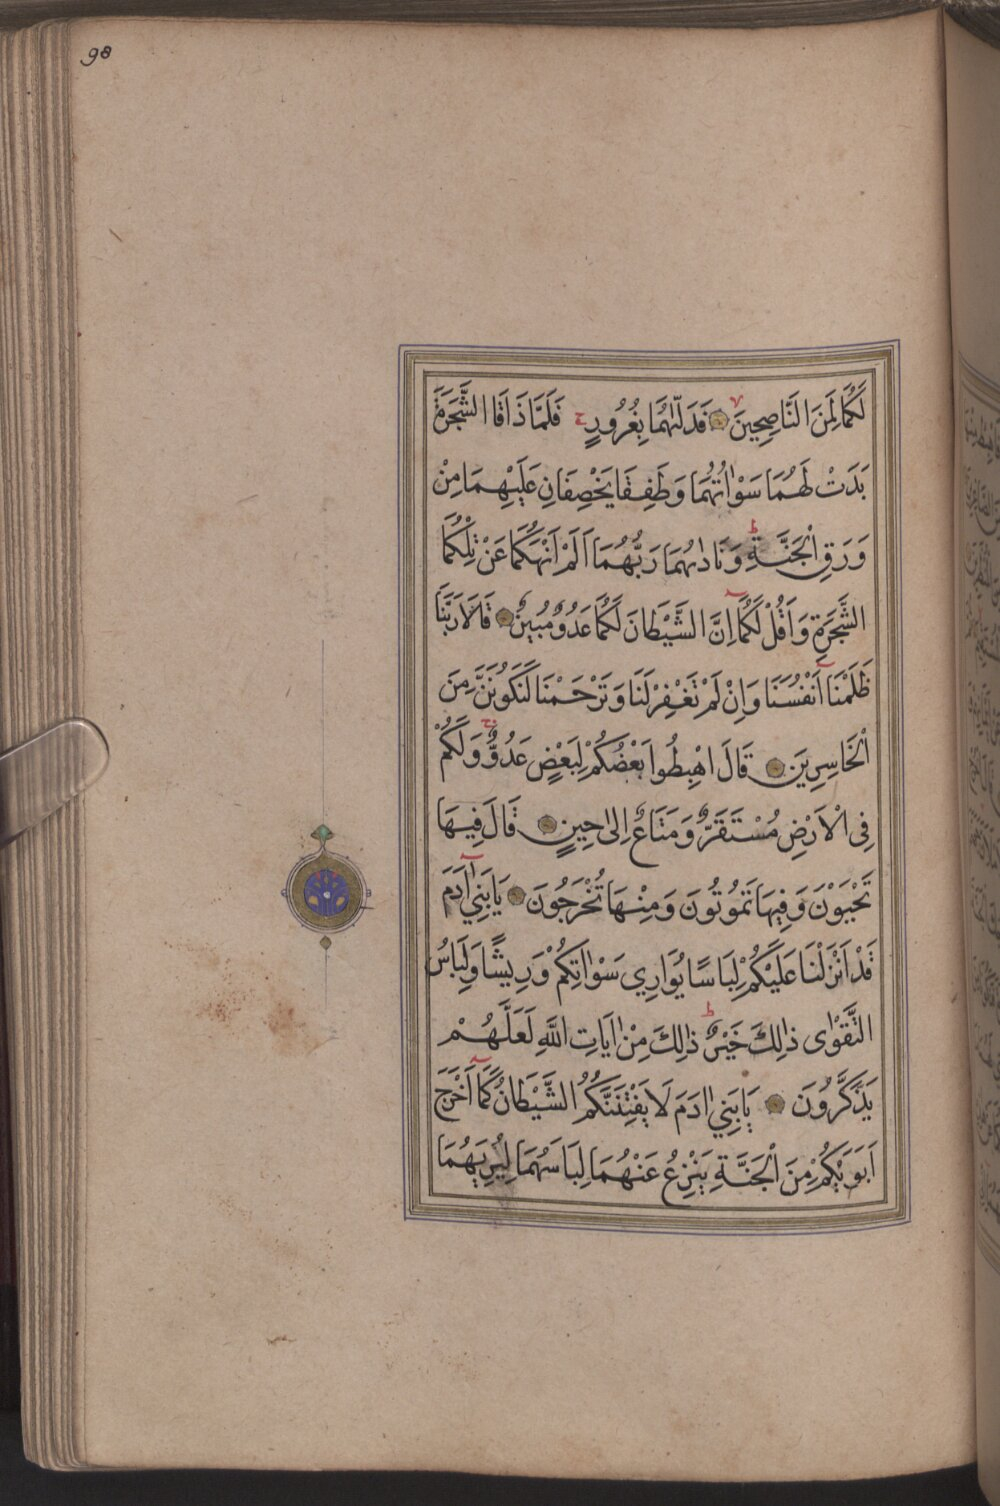 98
لَكُمَا لَمِنَ النَّاصِحِينَ فَدَلّٰيهُمَا بِغُرُورٍ ج فَلَمَّا ذَاقَا الشَّجَرَةَ
بَدَتْ لَهُمَا سَوْاٰتُهُمَا وَطَفِقَا يَخْصِفَانِ عَلَيْهِمَا مِنْ
وَرَقِ الْجَنَّةِ ط وَنَادٰيهُمَا رَبُّهُمَا اَلَمْ اَنْهَكُمَا عَنْ تِلْكُمَا
الشَّجَرَةِ وَاَقُلْ لَكُمَا اِنَّ الشَّيْطَانَ لَكُمَا عَدُوٌّ مُبِينٌ قَالَا رَبَّنَا
ظَلَمْنَا اَنْفُسَنَا وَاِنْ لَمْ تَغْفِرْ لَنَا وَتَرْحَمْنَا لَنَكُونَنَّ مِنَ
الْخَاسِرِينَ قَالَ اهْبِطُوا بَعْضُكُمْ لِبَعْضٍ عَدُوٌّ ج وَلَكُمْ
فِى الْاَرْضِ مُسْتَقَرٌّ وَمَتَاعٌ اِلٰى حِينٍ قَالَ فِيهَا
تَحْيَوْنَ وَفِيهَا تَمُوتُونَ وَمِنْهَا تُخْرَجُونَ يَا بَنِٓي اٰدَمَ
قَدْ اَنْزَلْنَا عَلَيْكُمْ لِبَاسًا يُوَارِي سَوْاٰتِكُمْ وَرِيشًا وَلِبَاسُ
التَّقْوٰى ذٰلِكَ خَيْرٌ ط ذٰلِكَ مِنْ اٰيَاتِ اللّٰهِ لَعَلَّهُمْ
يَذَّكَّرُونَ يَا بَنِٓي اٰدَمَ لَا يَفْتِنَنَّكُمُ الشَّيْطَانُ كَمَٓا اَخْرَجَ
اَبَوَيْكُمْ مِنَ الْجَنَّةِ يَنْزِعُ عَنْهُمَا لِبَاسَهُمَا لِيُرِيَهُمَا